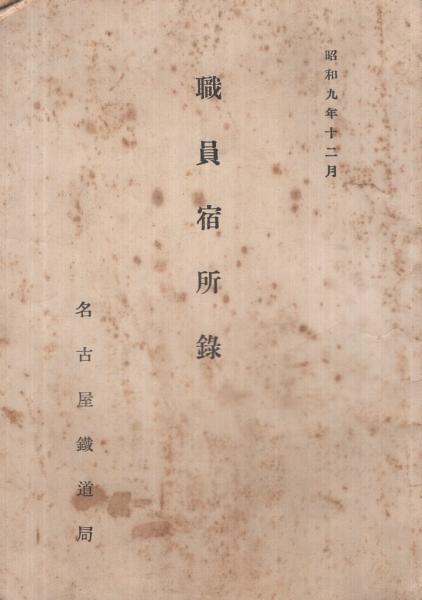 昭和九年十二月
職員宿所錄
名古屋鐵道局